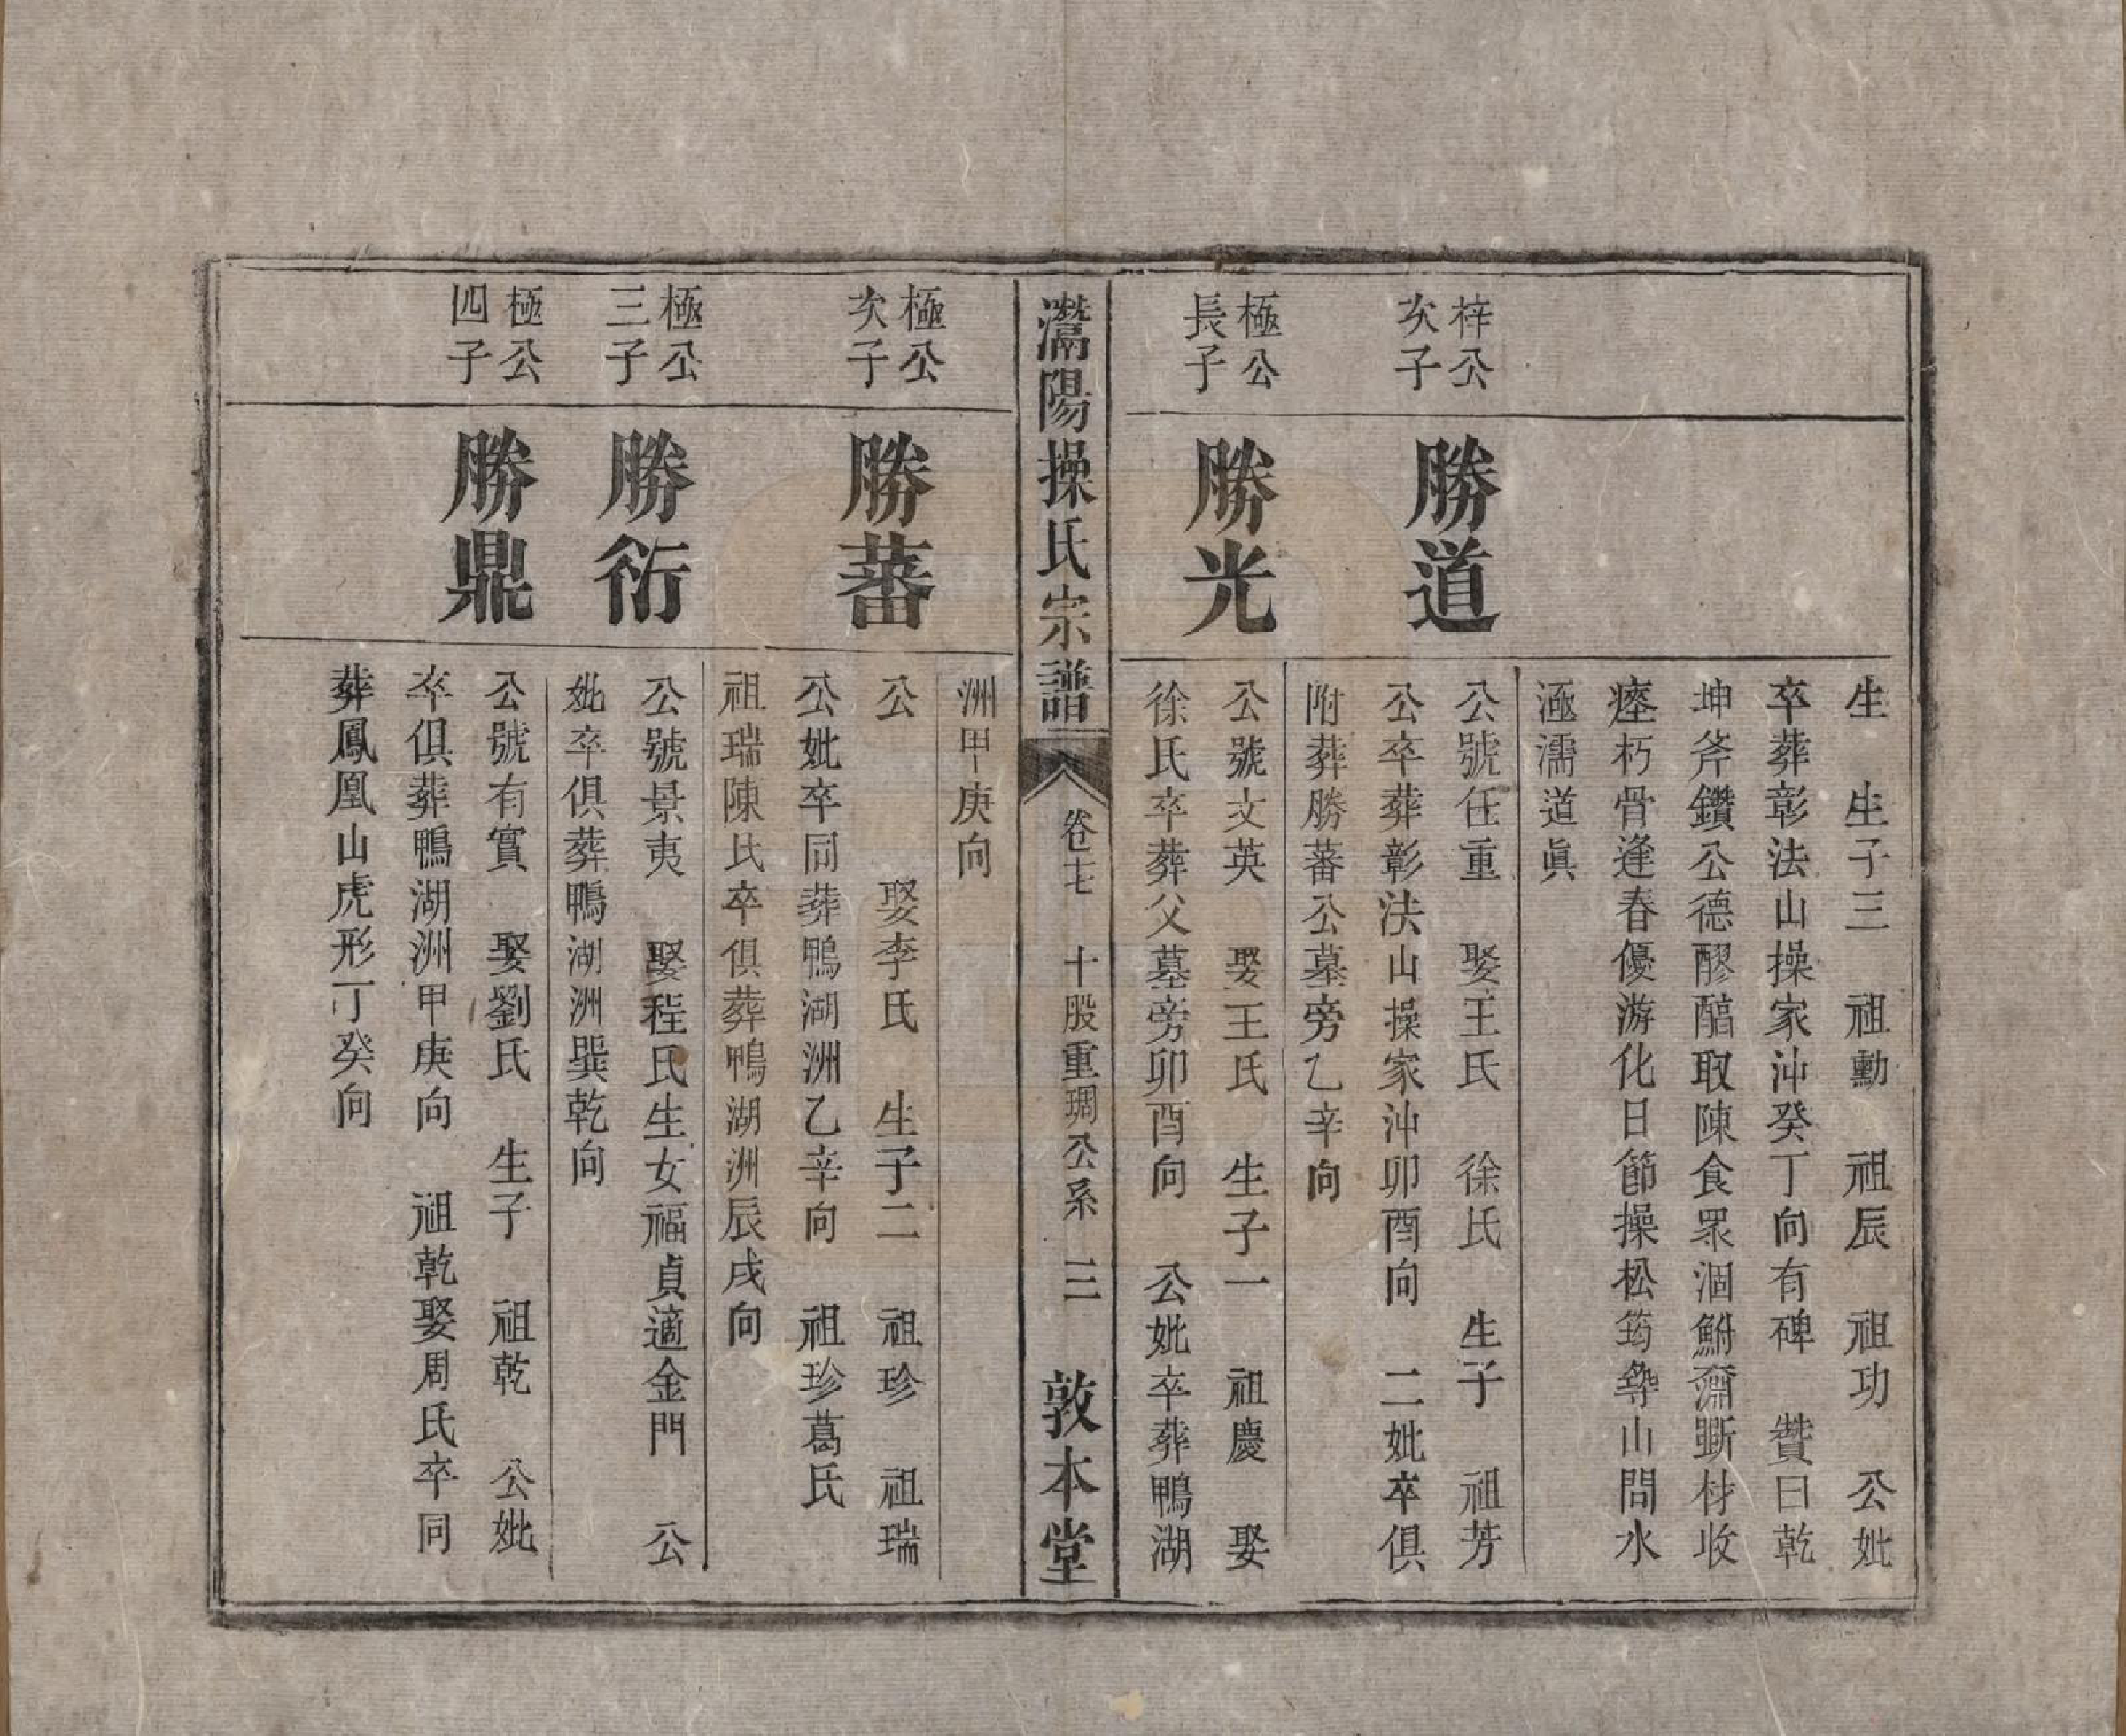 生　生子三　祖勳　祖辰　祖功　公妣
卒葬彰法山操家沖癸丁向有碑　贊曰乾
坤斧鑽公德醪醹取陳食眾涸鮒瀰斷材收
瘞朽骨逢春優游化日節操松筠尋山問水
涵濡道眞
梓公
次子
勝道
公號任重　娶王氏　徐氏　生子　祖芳
公卒葬彰法山操家沖卯酉向　二妣卒俱
附葬勝蕃公墓旁乙辛向
極公
長子
勝光
公號文英　娶王氏　生子一　祖慶　娶
徐氏卒葬父墓旁卯酉向　公妣卒葬鴨湖
灊陽操氏宗譜　卷七　十股重琱公系　三　敦本堂
洲甲庚向
極公
次子
勝蕃
公　　　娶李氏　生子二　祖珍　祖瑞
公妣卒同葬鴨湖洲乙辛向　祖珍葛氏
祖瑞陳氏卒俱葬鴨湖洲辰戌向
極公
三子
勝衍
公號景夷　娶程氏生女福貞適金門　公
妣卒俱葬鴨湖洲巽乾向
極公
四子
勝鼎
公號有實　娶劉氏　生子　祖乾　公妣
卒俱葬鴨湖洲甲庚向　祖乾娶周氏卒同
葬鳳凰山虎形丁癸向